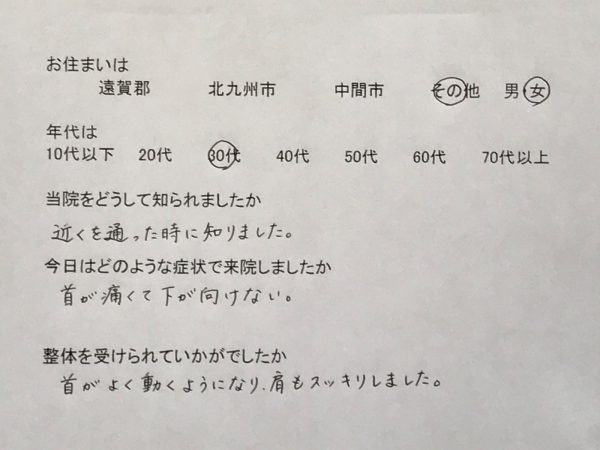 お住まいは
遠賀郡 北九州市 中間市 その他 男 女
年代は
10代以下 20代 30代 40代 50代 60代 70代以上
当院をどうして知られましたか
近くを通った時に知りました。
今日はどのような症状で来院しましたか
首が痛くて下が向けない。
整体を受けられていかがでしたか
首がよく動くようになり、肩もスッキリしました。